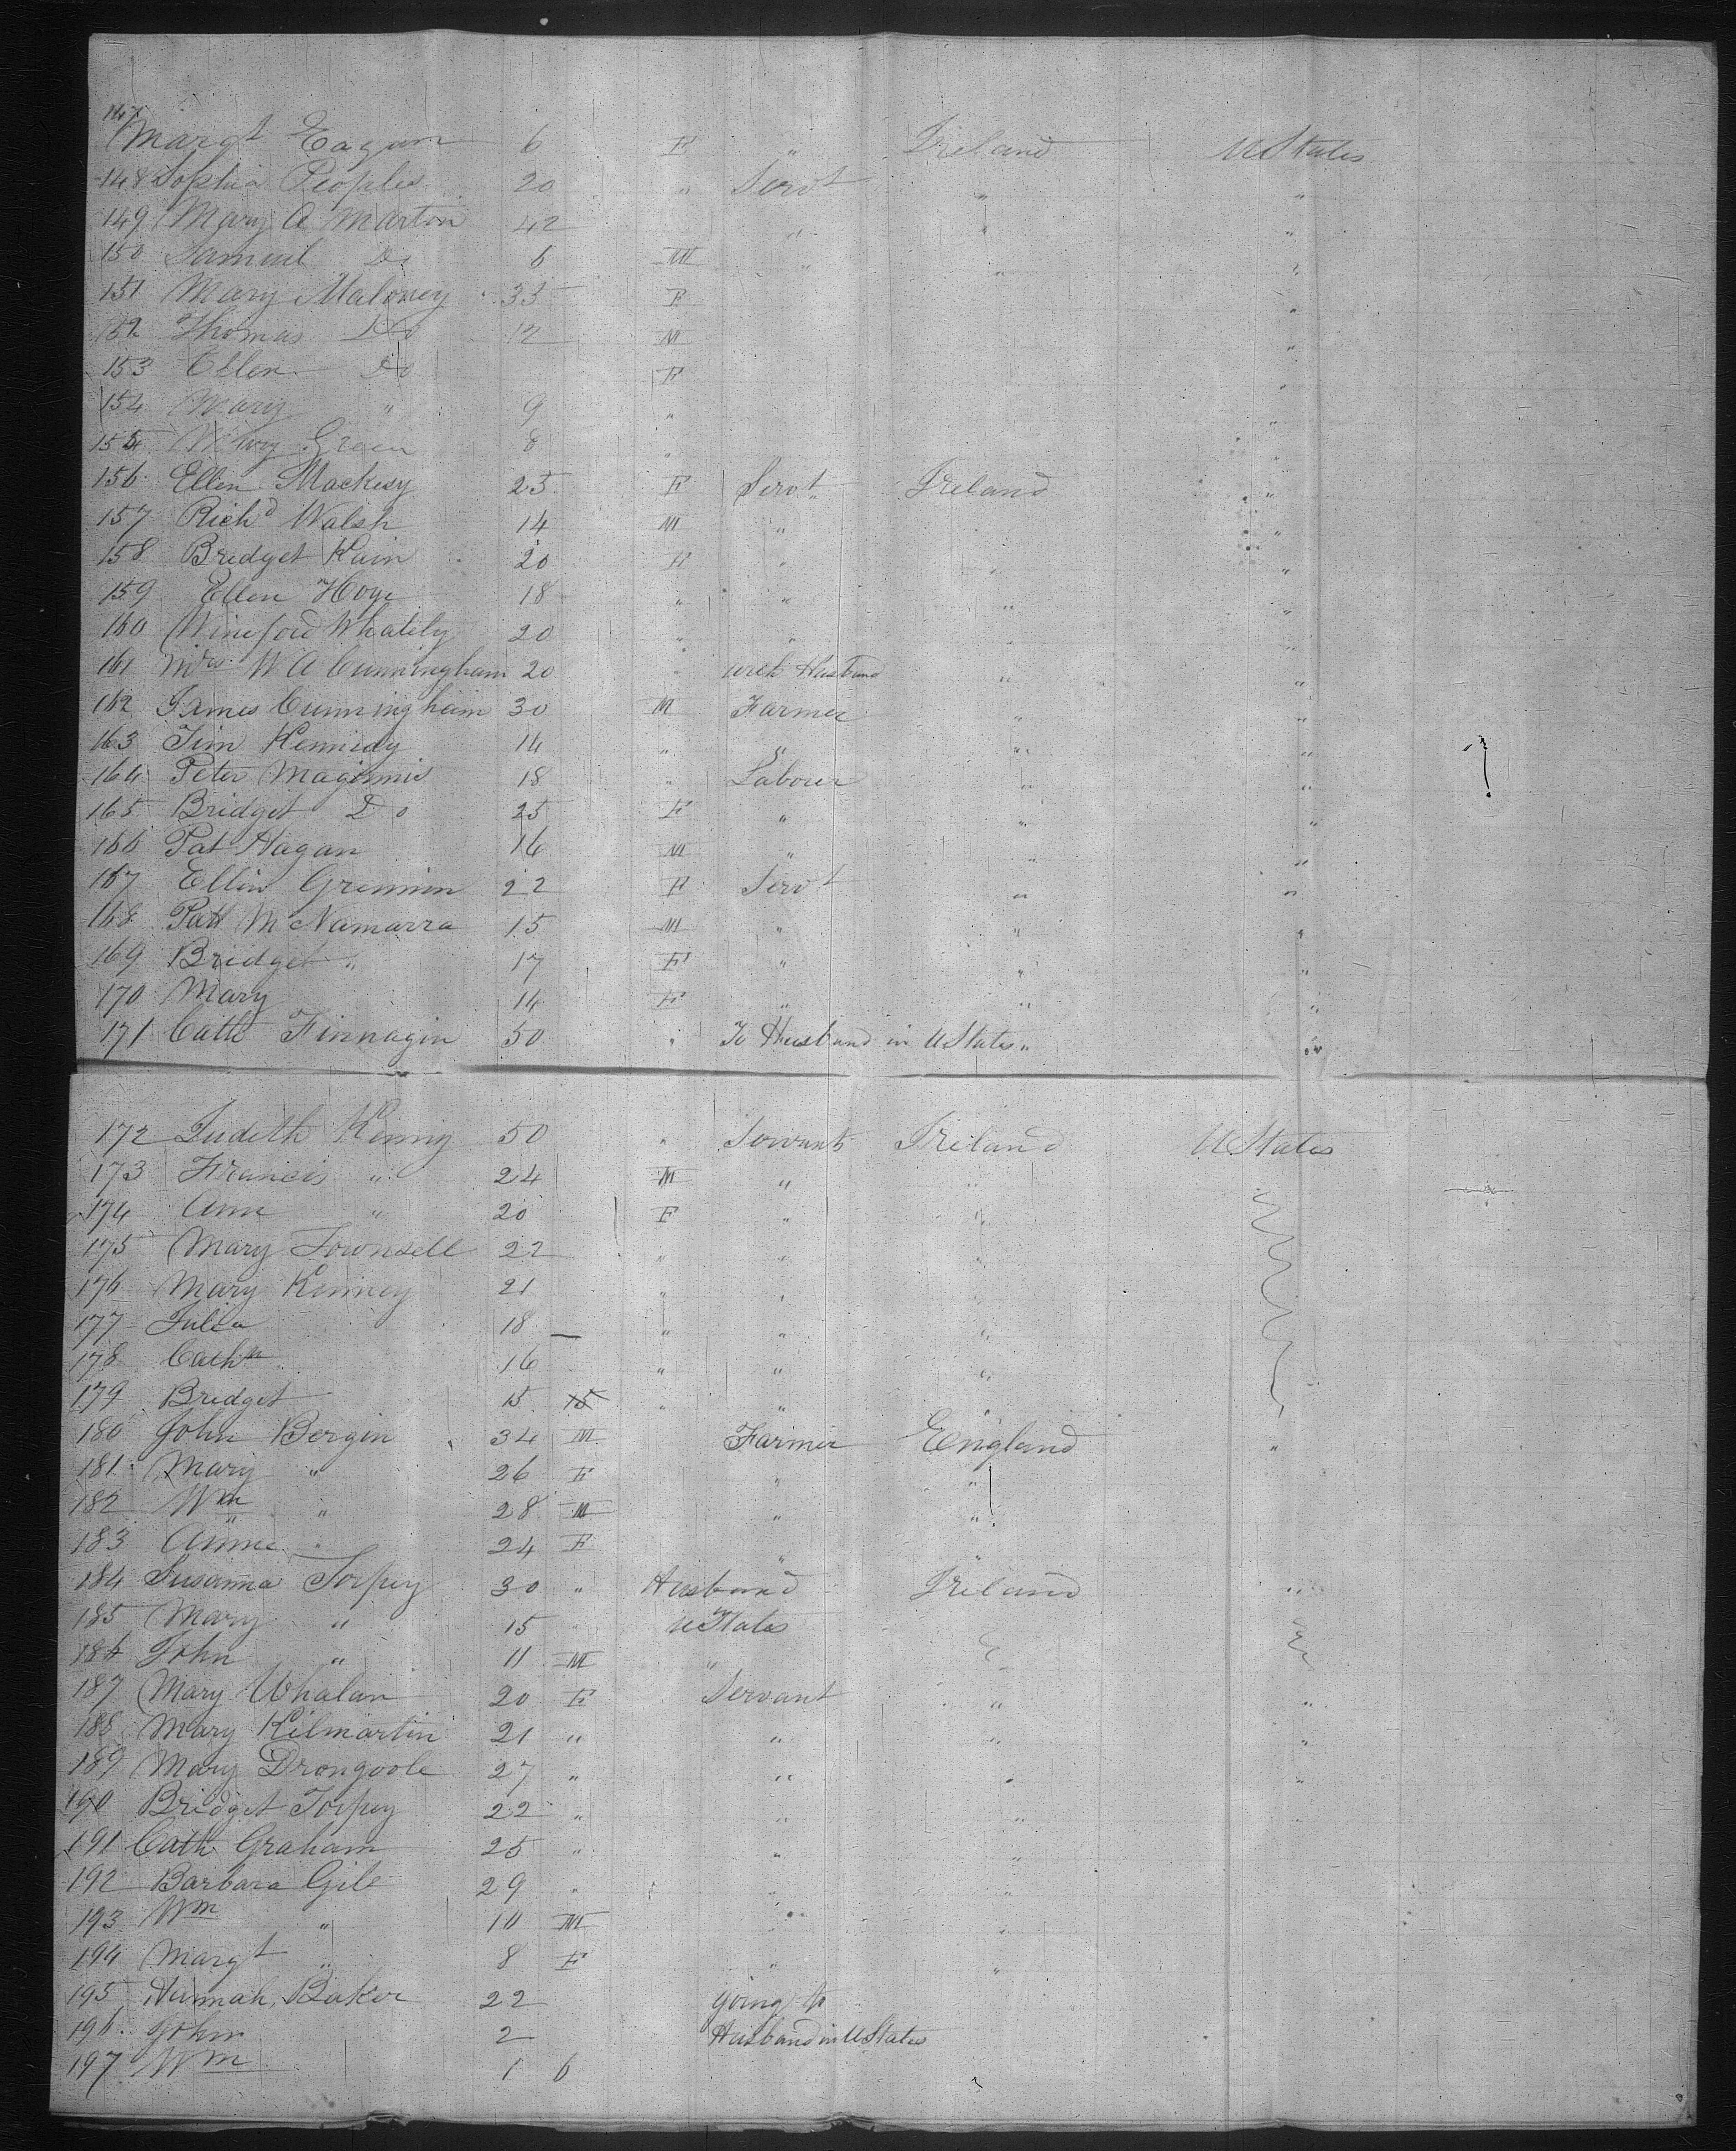 147 Margt Eagan 6 F " Ireland U States
148 Sophia Peoples 20 " Servt " "
149 Mary A Marton 42 " " "
150 Samuel Do 6 M " " "
151 Mary Maloney 33 F "
152 Thomas Do 12 M "
153 Ellen Do F "
154 Mary " 9 " "
155 Mary Green 8 " "
156 Ellen Mackesy 25 F Servt Ireland "
157 Richd Walsh 14 M " "
158 Bridget Kain 20 F " " "
159 Ellen Hoge 18 " " " "
160 Wineford Whately 20 " " " "
161 Mrs W A Cunningham 20 " with Husband " "
162 James Cunningham 30 M Farmer " "
163 Jim Kennedy 14 " " " "
164 Peter Maginnis 18 " Labourer " "
165 Bridget Do 25 F " " "
166 Pat Hagan 16 M " " "
167 Ellen Grennin 22 F Servt " "
168 Patt McNamarra 15 M " " "
169 Bridget " 17 F " " "
170 Mary 14 F " " "
171 Cath Finnagin 50 " To Husband in U States " "
172 Judeth Kenny 50 " Servants Ireland U States
173 Francis " 24 M " "
174 Ann " 20 F " "
175 Mary Townsell 22 " " "
176 Mary Kenney 21 " " "
177 Julia 18 " " "
178 Cathn 16 " " "
179 Bridget 15 15 " " "
180 John Bergin 34 M Farmer England "
181 Mary " 26 F " "
182 Wm " 28 M " "
183 Anne " 24 F " "
184 Susanna Torpey 30 " Husband Ireland "
185 Mary " 15 " in U States
186 John " 11 M "
187 Mary Whalan 20 F Servant " "
188 Mary Kilmartin 21 " " " "
189 Mary Drongoole 27 " " " "
190 Bridget Torpey 22 " " " "
191 Cath Graham 25 " " "
192 Barbara Gile 29 " " "
193 Wm " 10 M " "
194 Margt " 8 F " "
195 Hannah Baker 22 going to
196 John 2 Husband in U States
197 Wm 1 6